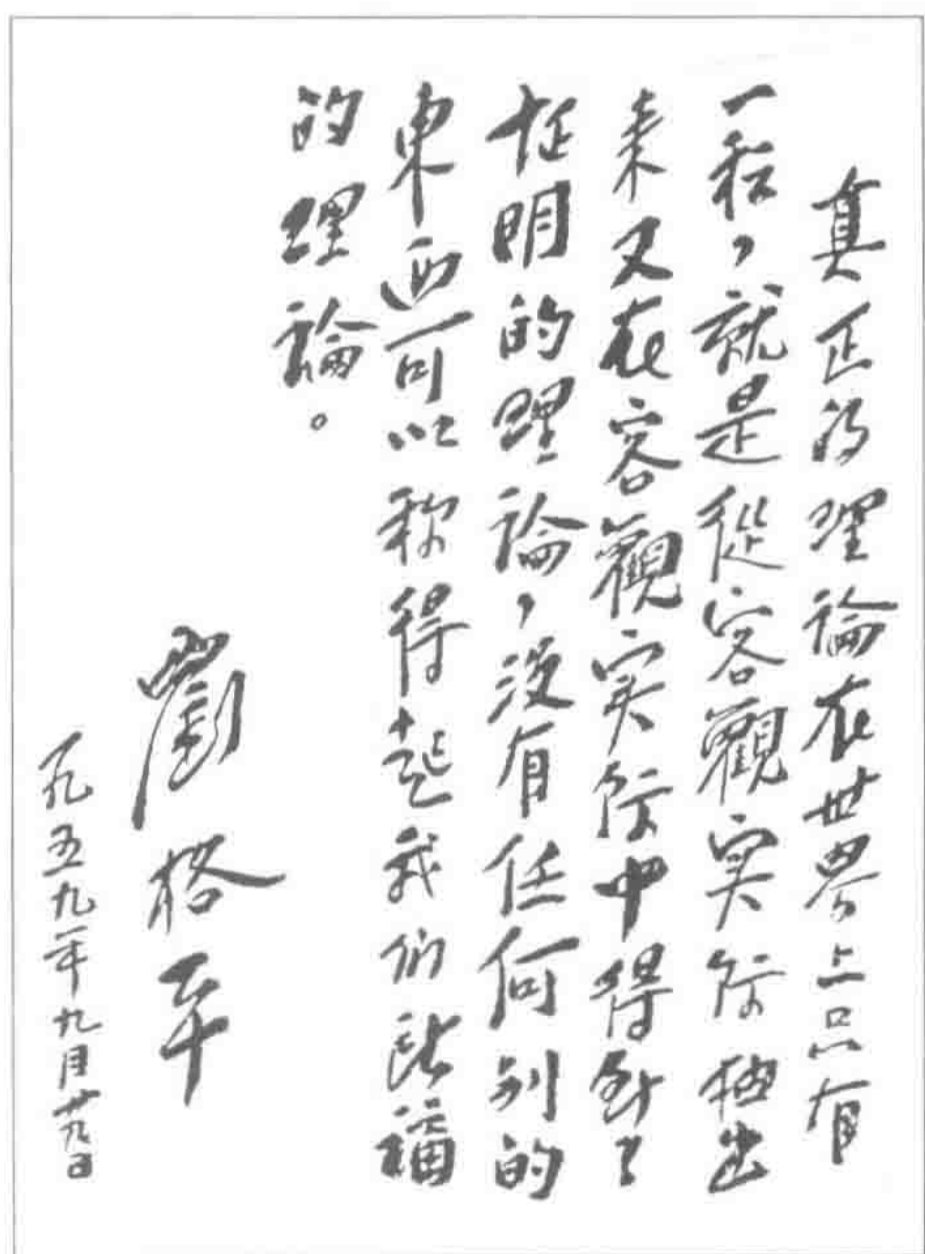 真正的理論在世界上只有
一种，就是從客觀实际抽出
来又在客觀实际中得到了
证明的理論，没有任何别的
東西可以称得起我们所講
的理論。
劉格平
一九五九年九月廿九日